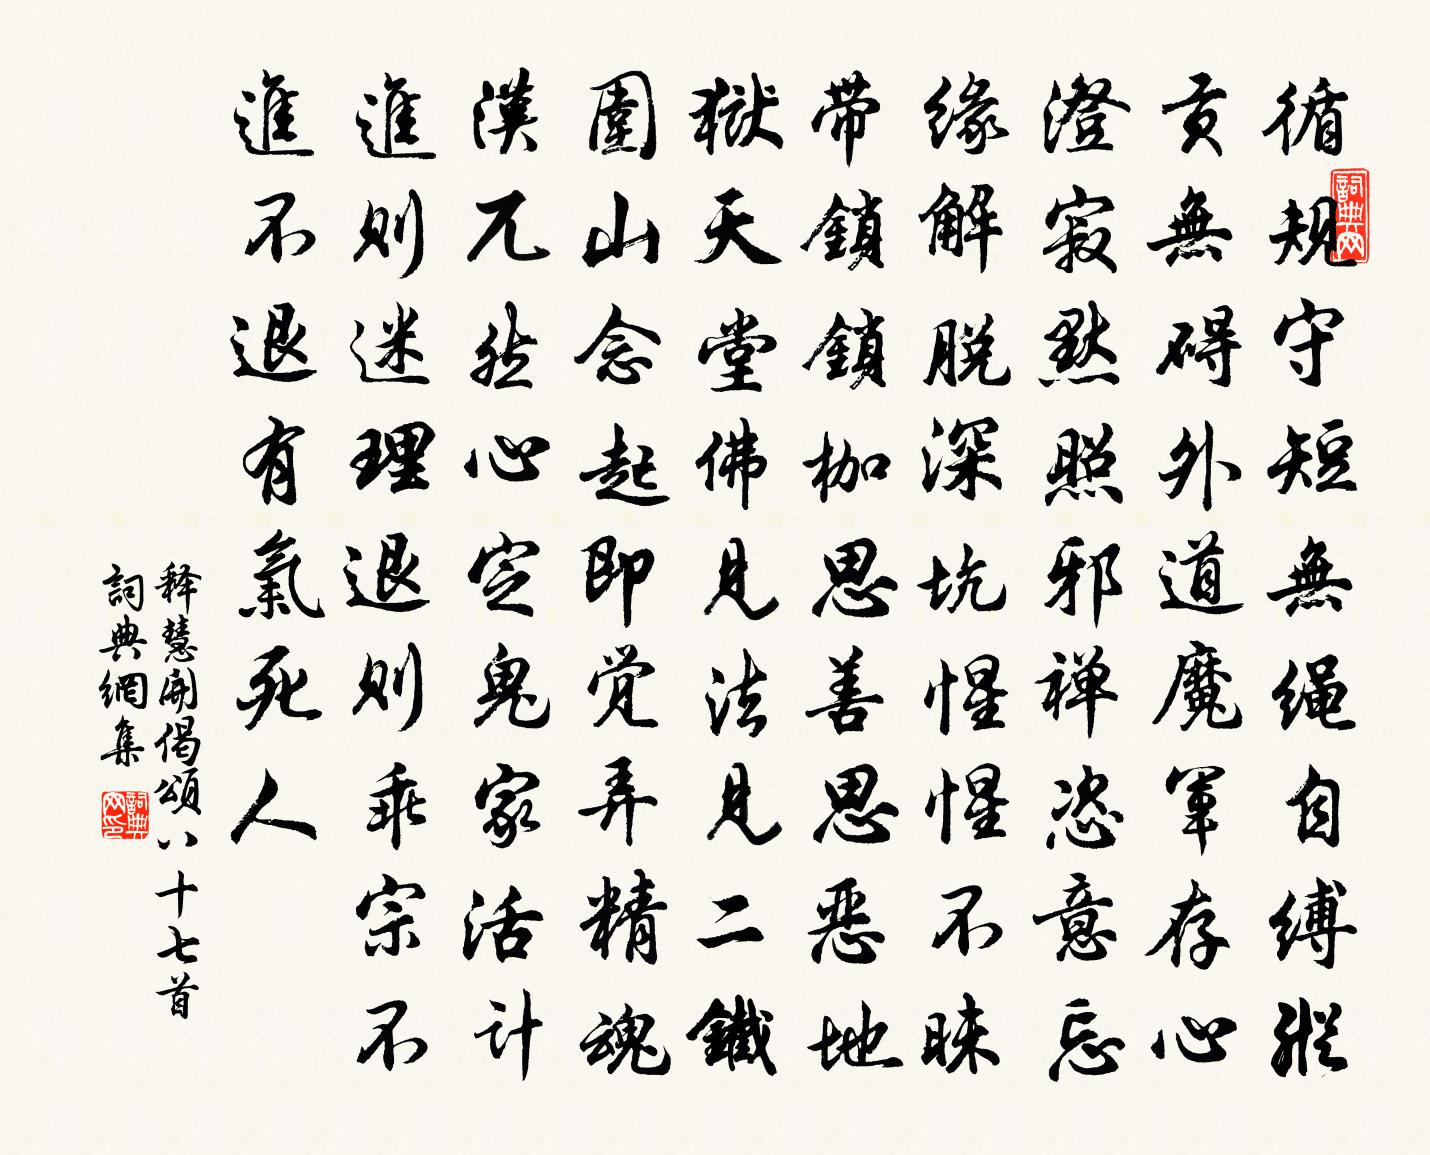 循規守矩無繩自縛縱
貢無碍外道魔軍存心
澄寂黙照邪禅恣意忘
緣解脱深坑惺惺不昧
带鎖鎖枷思善思恶地
獄天堂佛見法見二鐵
圍山念起即覚弄精魂
漢兀然心定鬼家活計
進則迷理退則乖宗不
進不退有氣死人
释慧開偈頌八十七首
詞典網集
詞典网
詞典网印